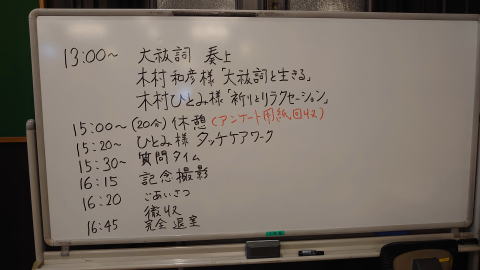 13:00~ 大祓詞 奏上
木村和彦様「大祓詞と生きる」
木村ひとみ様「祈りとリラクセーション」
15:00~ (20分) 休憩 (アンケート用紙回収)
15:20~ ひとみ様 タッチケアワーク
15:30~ 質問タイム
16:15 記念撮影
16:20 ごあいさつ
撤収
16:45 完全退室